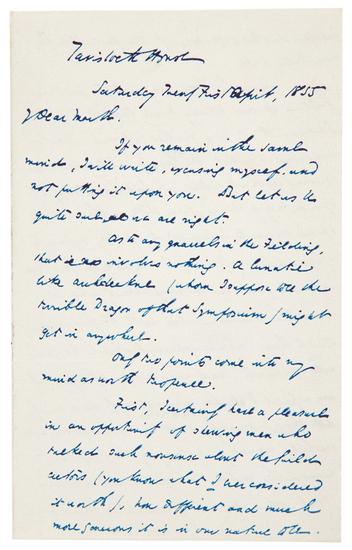 Tavistock House
Saturday Twenty First April, 1855
My Dear Mark.
If you remain in the same
mind, I will write, excusing myself, and
not putting it upon you. But let us be
quite sure we are right.
As to any quarrels in the Fielding,
that is no involves nothing. A lunatic
like (whom I suppose to be the
terrible Dragon of that Symposium) might
get in anywhere.
Only two points come into my
mind as worth twopence.
First, I certainly have a pleasure
in an opportunity of shewing men who
talked such nonsense about the Guild
actors (you know what I was considered
it worth), how different and much
more generous it is in our nature to be.